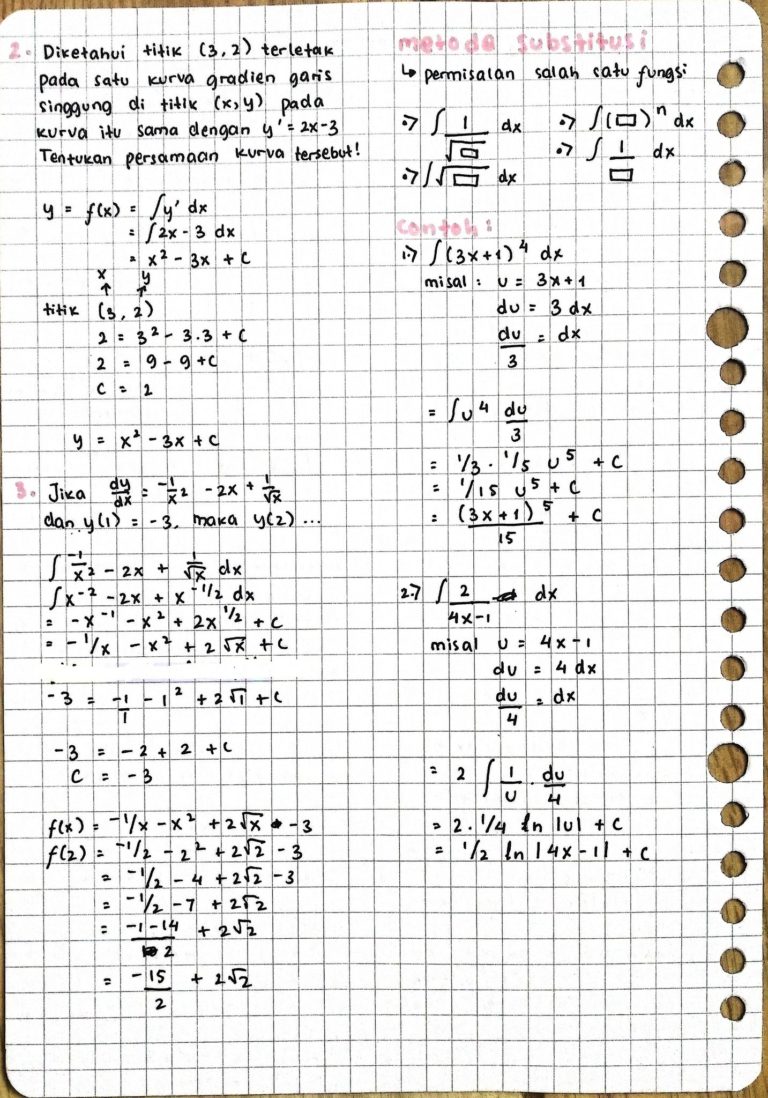 2. Diketahui titik (3,2) terletak
pada satu kurva gradien garis
singgung di titik (x,y) pada
kurva itu sama dengan y' = 2x-3
Tentukan persamaan kurva tersebut!
y = f(x) = ∫y' dx
= ∫2x - 3 dx
= x² - 3x + c
x y
↑ ↑
titik (3,2)
2 = 3² - 3.3 + c
2 = 9 - 9 + c
c = 2
y = x² - 3x + c
3. Jika dy/dx = -1/x² - 2x + 1/√x
dan y(1) = -3, maka y(2) ...
∫ -1/x² - 2x + 1/√x dx
∫x⁻² - 2x + x^-1/2 dx
= -x⁻¹ - x² + 2x^1/2 + c
= -1/x - x² + 2√x + c
-3 = -1/1 - 1² + 2√1 + c
-3 = -2 + 2 + c
c = -3
f(x) = -1/x - x² + 2√x - 3
f(2) = -1/2 - 2² + 2√2 - 3
= -1/2 - 4 + 2√2 - 3
= -1/2 - 7 + 2√2
= -1-14/2 + 2√2
= -15/2 + 2√2
metode substitusi
↳ permisalan salah satu fungsi
•> ∫ 1/√▭ dx •> ∫(▭)ⁿ dx
•> ∫√▭ dx •> ∫ 1/▭ dx
contoh:
1.> ∫(3x+1)⁴ dx
misal : u = 3x+1
du = 3 dx
du/3 = dx
= ∫u⁴ du/3
= 1/3 . 1/5 u⁵ + c
= 1/15 u⁵ + c
= (3x+1)⁵/15 + c
2.> ∫ 2/4x-1 dx
misal u = 4x-1
du = 4 dx
du/4 = dx
= 2 ∫ 1/u . du/4
= 2. 1/4 ln |u| + c
= 1/2 ln |4x-1| + c